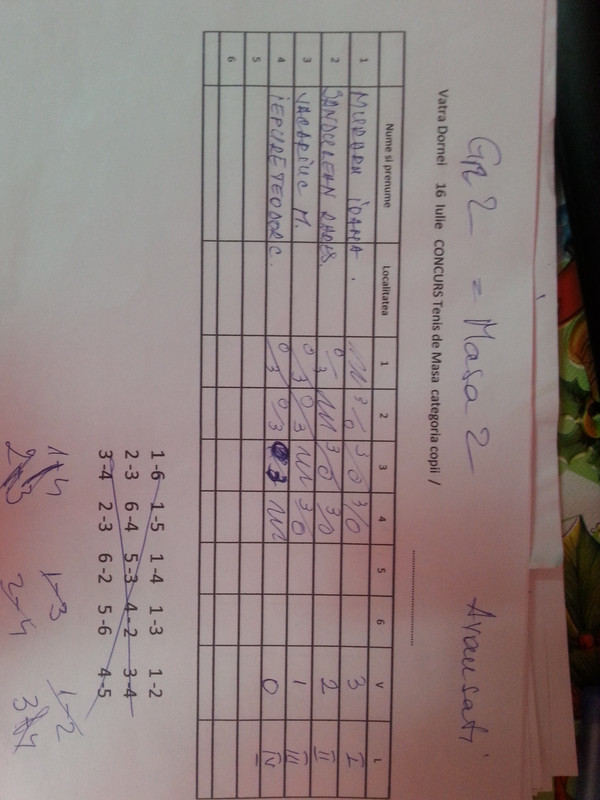 GR 2 = Masa 2 Avansati
Vatra Dornei 16 Iulie CONCURS Tenis de Masa categoria copii / ........................
Nume si prenume Localitatea 1 2 3 4 5 6 V L
1 MURARU IOANA . 3/0 3/0 3/0 3 I
2 SANDULEAN RARES. 0/3 3/0 3/0 2 II
3 IACOBIUC M. 0/3 0/3 3/0 1 III
4 IEPURE TEODOR C. 0/3 0/3 0/3 0 IV
5
6
1-6 1-5 1-4 1-3 1-2
2-3 6-4 5-3 4-2 3-4
3-4 2-3 6-2 5-6 4-5
1-4 1-3 1-2
2-3 2-4 3-4